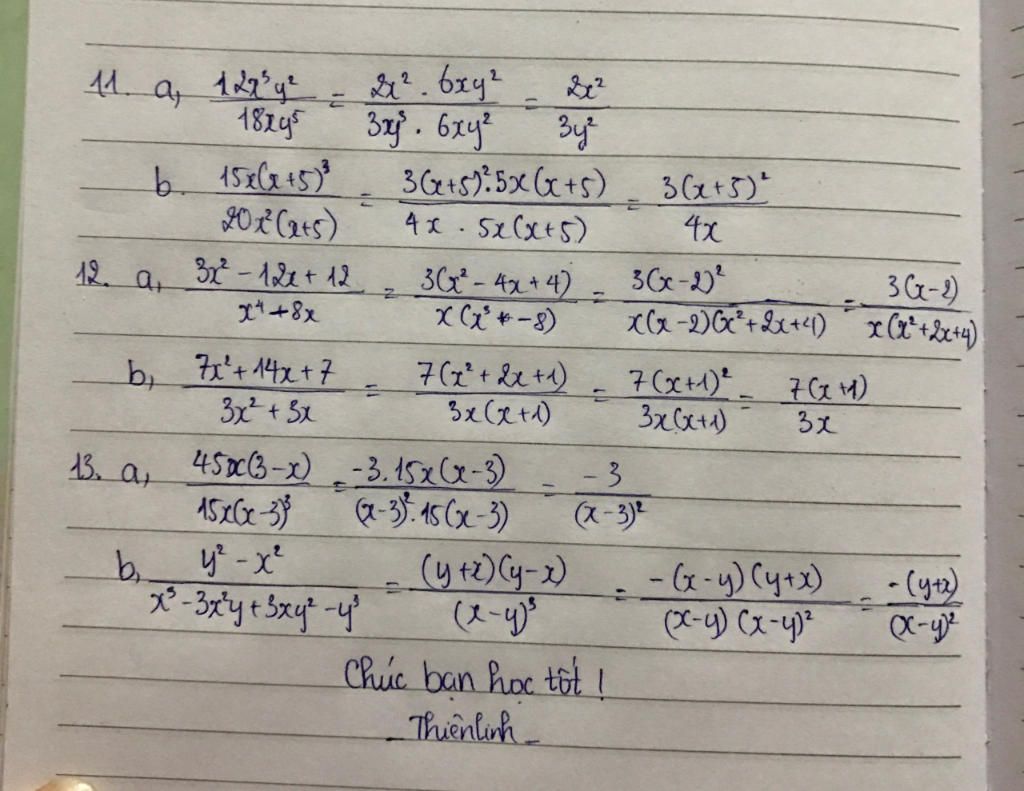 11. a, 12x³y²/18xy⁵ = 2x² . 6xy²/3xy³ . 6xy² = 2x²/3y²
b. 15x(x+5)³/20x²(x+5) = 3(x+5)².5x(x+5)/4x . 5x(x+5) = 3(x+5)²/4x
12. a, 3x² - 12x + 12/x⁴ + 8x = 3(x² - 4x + 4)/x(x³ + -8) = 3(x-2)²/x(x-2)(x²+2x+4) = 3(x-2)/x(x²+2x+4)
b, 7x² + 14x + 7/3x² + 3x = 7(x² + 2x + 1)/3x(x+1) = 7(x+1)²/3x(x+1) = 7(x+1)/3x
13. a, 45x(3-x)/15x(x-3)³ = -3.15x(x-3)/(x-3)².15(x-3) = -3/(x-3)²
b, y² - x²/x³ - 3x²y + 3xy² - y³ = (y+x)(y-x)/(x-y)³ = -(x-y)(y+x)/(x-y)(x-y)² = -(y+x)/(x-y)²
Chúc bạn học tốt !
_ Thiênlinh _